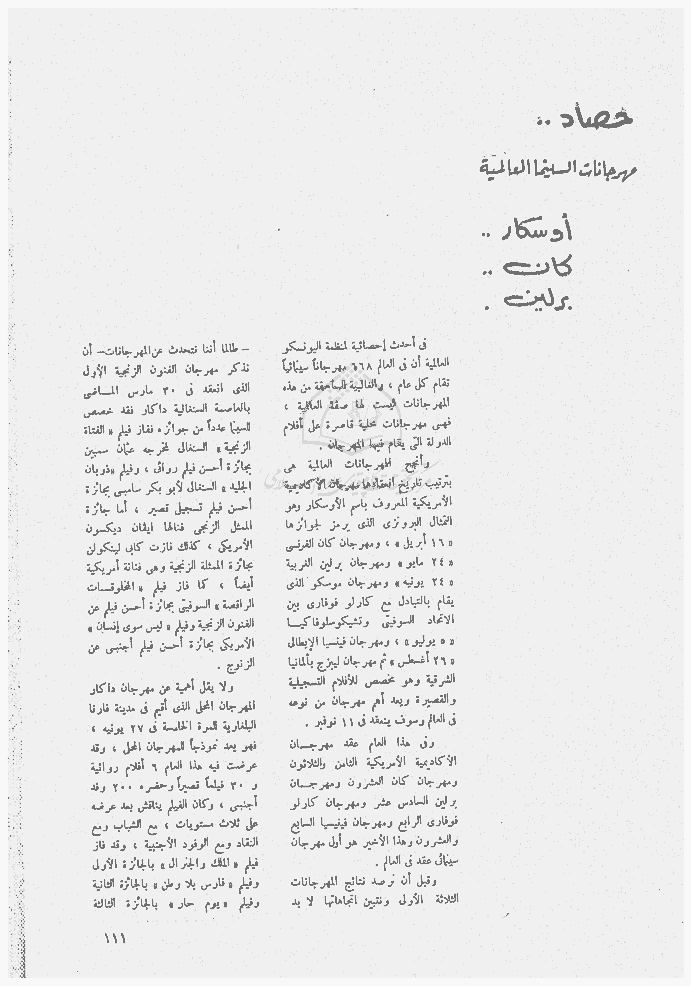 حصاد ..
مهرجانات السينما العالمية
أوسكار ..
كان ..
برلين .
فى أحدث إحصائية لمنظمة اليونسكو
العالمية أن فى العالم ٦٦٨ مهرجاناً سينمائياً
تقام كل عام ، والغالبية الساحقة من هذه
المهرجانات ليست لها صفة العالمية ،
فهى مهرجانات محلية قاصرة على أفلام
الدولة التى يقام فيها المهرجان .
وأنجح المهرجانات العالمية هى
بترتيب تاريخ انعقادها مهرجان الأكاديمية
الأمريكية المعروف باسم الأوسكار وهو
التمثال البرونزى الذى يرمز لجوائزها
« ١٦ أبريل » ، ومهرجان كان الفرنسى
« ٢٤ مايو » ومهرجان برلين الغربية
« ٢٤ يونيه » ومهرجان موسكو الذى
يقام بالتبادل مع كارلو فوفارى بين
الاتحاد السوفيتى وتشيكوسلوفاكيا
« ٥ يوليو » ، ومهرجان فينسيا الإيطالى
« ٢٦ أغسطس » ثم مهرجان ليبزج بألمانيا
الشرقية وهو مخصص للأفلام التسجيلية
والقصيرة ويعد أهم مهرجان من نوعه
فى العالم وسوف ينعقد فى ١١ نوفمبر .
وفى هذا العام عقد مهرجان
الأكاديمية الأمريكية الثامن والثلاثون
ومهرجان كان العشرون ومهرجان
برلين السادس عشر ومهرجان كارلو
فوفارى الرابع ومهرجان فينيسيا السابع
والعشرون وهذا الأخير هو أول مهرجان
سينمائى عقد فى العالم .
وقبل أن نرصد نتائج المهرجانات
الثلاثة الأولى ونتبين اتجاهاتها لا بد
– طالما أننا نتحدث عن المهرجانات – أن
نذكر مهرجان الفنون الزنجية الأول
الذى انعقد فى ٣٠ مارس الماضى
بالعاصمة السنغالية داكار فقد خصص
للسينما عدداً من جوائزه ففاز فيلم « الفتاة
الزنجية » السنغالى لمخرجه عثمان سمبين
بجائزة أحسن فيلم روائى ، وفيلم « ذوبان
الجليد » السنغالى لأبو بكر سامبى بجائزة
أحسن فيلم تسجيلى قصير ، أما جائزة
الممثل الزنجى فنالها ايفان ديكسون
الأمريكى ، كذلك فازت كابى لينكولن
بجائزة الممثلة الزنجية وهى فنانة أمريكية
أيضاً ، كما فاز فيلم « المخلوقات
الراقصة » السوفيتى بجائزة أحسن فيلم عن
الفنون الزنجية وفيلم « ليس سوى إنسان »
الأمريكى بجائزة أحسن فيلم أجنبى عن
الزنوج .
ولا يقل أهمية عن مهرجان داكار
المهرجان المحلى الذى أقيم فى مدينة فارنا
البلغارية للمرة الخامسة فى ٢٧ يونيه ،
فهو يعد نموذجاً للمهرجان المحلى ، وقد
عرضت فيه هذا العام ٦ أفلام روائية
و ٣٠ فيلماً قصيراً وحضره ٢٠٠ وفد
أجنبى ، وكان الفيلم يناقش بعد عرضه
على ثلاث مستويات ، مع الشباب ومع
النقاد ومع الوفود الأجنبية ، وقد فاز
فيلم « الملك والجنرال » بالجائزة الأولى
وفيلم « فارس بلا وطن » بالجائزة الثانية
وفيلم « يوم حار » بالجائزة الثالثة
١١١